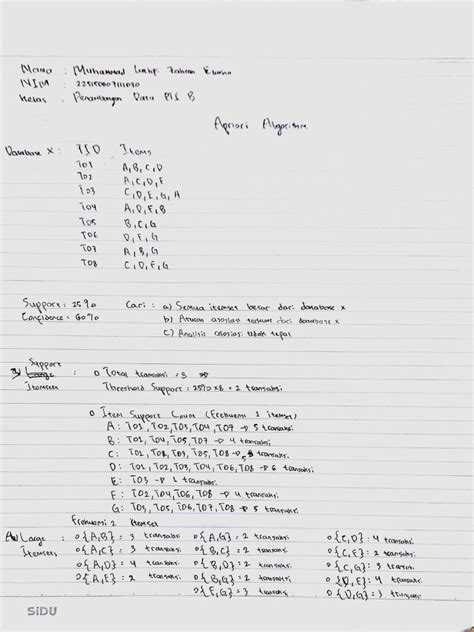 Nama : Muhammad
NIM :
Kelas : Penambangan Data PTI B
Apriori Algorithm
Database X : TID Items
T01 A, B, C, D
T02 A, C, D, F
T03 C, D, E, G, A
T04 A, D, F, B
T05 B, C, G
T06 D, F, G
T07 A, B, G
T08 C, D, F, G
Support : 25% Cari : a) Semua itemset besar dari database x
Confidence : 60% b) Aturan asosiasi terkuat dari database x
c) Analisis asosiasi
Support
: o Total transaksi : 8
Itemsets Threshold Support : 25% x 8 = 2 transaksi
o Item Support Count (Frekuensi 1 itemset)
A : T01, T02, T03, T04, T07 → 5 transaksi
B : T01, T04, T05, T07 → 4 transaksi
C : T01, T02, T03, T05, T08 → 5 transaksi
D : T01, T02, T03, T04, T06, T08 → 6 transaksi
E : T03 → 1 transaksi
F : T02, T04, T06, T08 → 4 transaksi
G : T03, T05, T06, T07, T08 → 5 transaksi
Frekuensi 2 itemset
Large o {A,B} = 3 transaksi o {A,G} = 2 transaksi o {C,D} : 4 transaksi
Itemsets o {A,C} = 3 transaksi o {B,C} = 2 transaksi o {C,F} : 2 transaksi
o {A,D} = 4 transaksi o {B,D} = 2 transaksi
o {A,F} = 2 transaksi o {B,G} = 2 transaksi o {D,F} : 4 transaksi
o {F,G} = 2 transaksi o {D,G} = 3 transaksi
SiDU